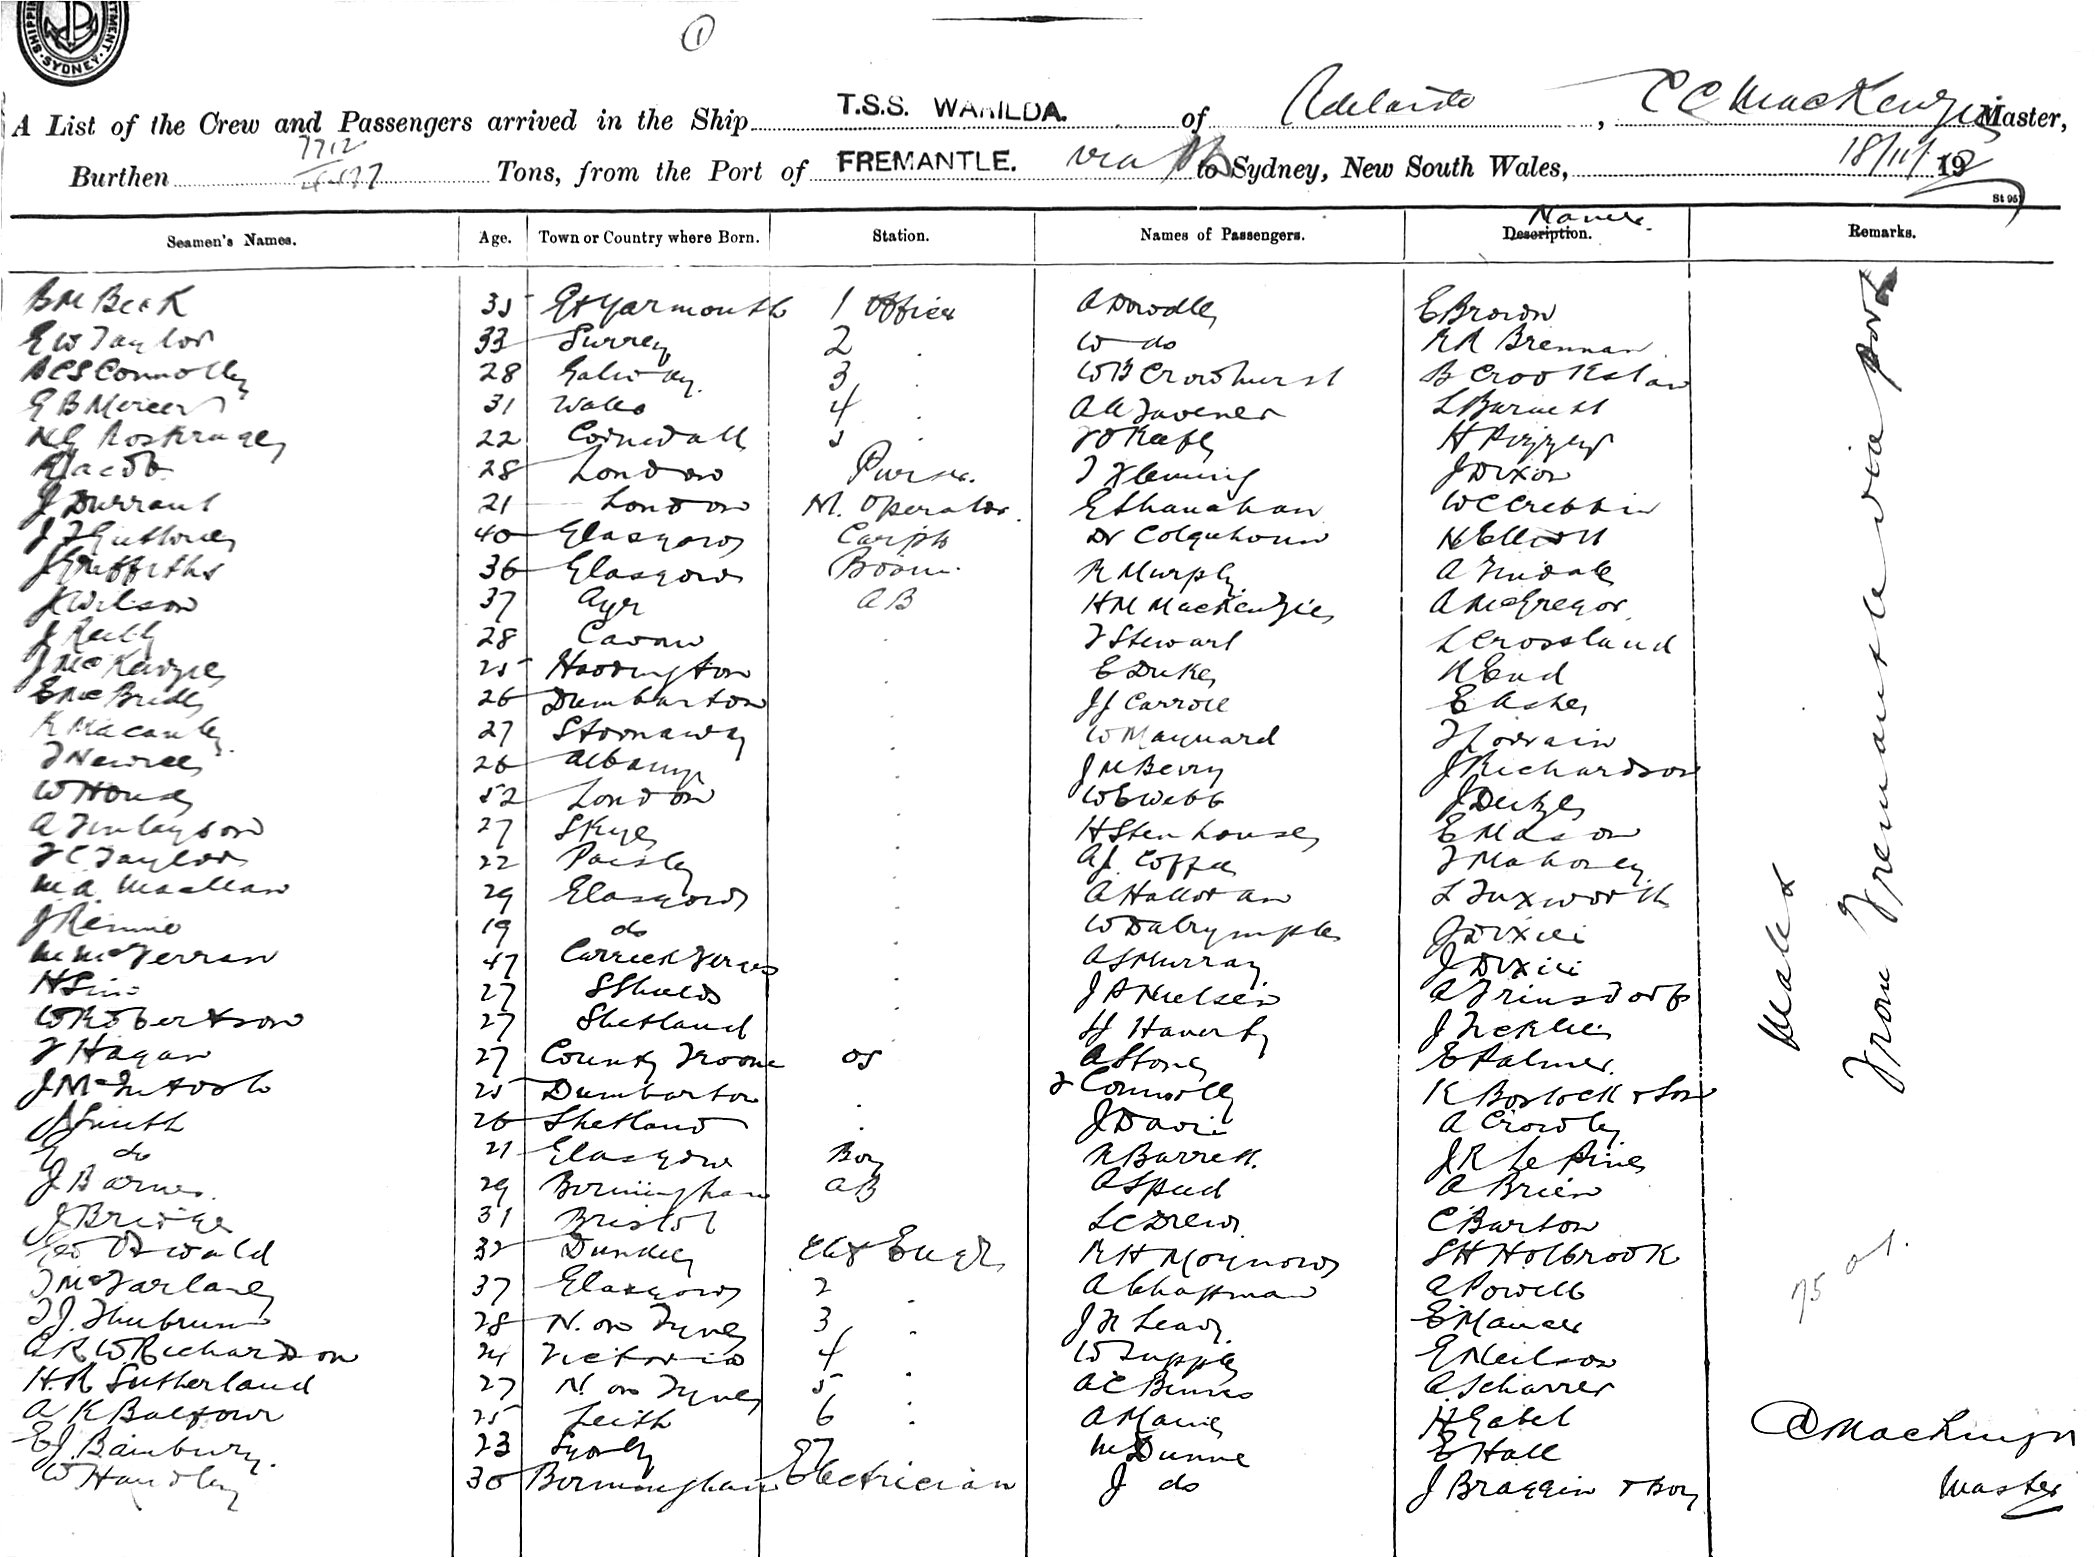 SHIPPI
TMENT. SYDNEY.
1
A List of the Crew and Passengers arrived in the Ship T.S.S. WARILDA. of Adelaide, C C MacKenzie Master,
Burthen 7712 Tons, from the Port of FREMANTLE. via to Sydney, New South Wales, 18/11/ 19
St 95
Seamen's Names. Age. Town or Country where Born. Station. Names of Passengers. Description. Name. Remarks.
B M Beck 35 Gt Yarmouth 1 Officer A Dowdle E Brown
E W Taylor 33 Surrey 2 W do R R Brennan
A C S Connolly 28 Galway 3 W B Crowhurst B Crookslaw
G B Mercer 31 Wales 4 A A Tavener L Burnett
N G Roskruge 22 Cornwall 5 T O Keefe H
R Jacob 28 London Purser. T Fleming J Dixon
J Durrant 21 London M. Operator E Shanahan W C Crebbin
J F Guthrie 40 Glasgow Dr Colquhoun H Elliott
J Griffiths 36 Glasgow R Murphy A Tindale
J Wilson 37 Ayr A B H M MacKenzie A McGregor
J Reilly 28 Cavan T Stewart L Crossland
J McKenzie 25 Haddington E Duke R
E McBride 26 Dumbarton J J Carroll E Ashe
K Macauley 27 Stornaway W Maynard T Lorrain
T 26 Albany J M Berry J Richardson
W House 52 London W E Webb J
A Finlayson 27 Skye H Stenhouse E Mason
T C Taylor 22 Paisley A J Coffee T Mahoney
M A MacLean 29 Glasgow A Halloran L Tuxworth
J Rennie 19 do W Dalrymple J
M McFerran 47 Carrickfergus A S Murray J
H Sim 27 S Shields J A Nielsen A Trinsdorf
W Robertson 27 Shetland H Hanerty J
T Hagan 27 County Tyrone O S A Stone E Palmer
J McIntosh 25 Dumbarton T Connolly R Bostock & Son
A Smith 26 Shetland J Davis A Crowley
G do 21 Glasgow Boy R Barrett. J R Le Pine
J Barnes 29 Bormingham A B A Speed A Brien
J Bridge 31 Bristol L C Drew C Burton
Geo Oswald 32 Dundee Chf Engr R H Moynow S H Holbrook
J McFarlane 37 Glasgow 2 A Chapman A Powell
T J Thubrun 28 N. on Tyne 3 J R Leary E Manser
A R W Richardson 24 Victoria 4 W Tupple E Neilson
H. R Sutherland 27 N. on Tyne 5 A C Binns A Scharrer
A K Balfour 25 Leith 6 A Manie H Gabel
E J. Bambury. 23 Sydney 7 M Dunne E Hall
W Handley 30 Bormingham Electrician J do J Braggin & Boy
Males
From Fremantle via ports
75 ad.
C C MacKenzie
Master